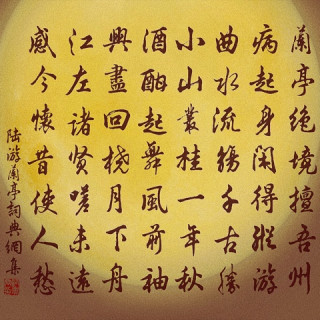 蘭亭絕境擅吾州
病起身閑得縱游
曲水流觴千古勝
小山叢桂一年秋
酒酣起舞風前袖
興盡回橈月下舟
江左諸賢嗟未遠
感今懷昔使人愁
陸游蘭亭詞典網集